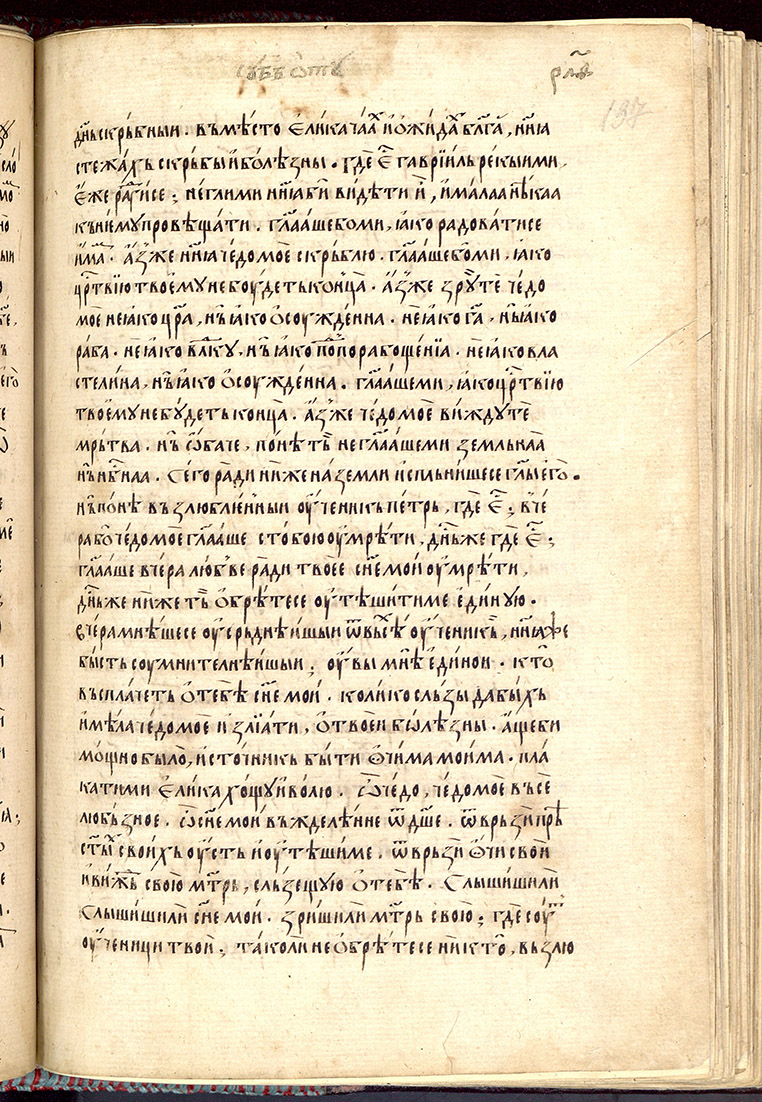 сꙋббѡтꙋ
рл҃з
137
дн҃ьскрьбныи. въмѣсто є҆лика чаа́хь и҆ѡжида́хь бл҃га́ꙗ, нн҃ꙗ
стежахь скрьбы и҆болѣзны. где є҆с҃ гаврїиль рекыими,
є҆же раⷣуисе; не глими нн҃ꙗ би видѣти и҆, и҆мала а нѣкаа
кънемꙋ провѣщати. гл҃аа́ше бо ми, ꙗко радоватисе
и҆маⷨ. а҆зже нн҃ꙗ чедо мое скрьблю. гл҃аа́ше бо ми, ꙗко
црⷭ҇твїю твоемꙋ не боудеть конца. а҆зже зрꙋ те чедо
мое не ꙗко цр҃а, нь ꙗко ѡ҆сꙋжденна. не ꙗко га҃, нь ꙗко
раба. не ꙗко влⷣкꙋ, нь ꙗко попорабощенїа. не ꙗко вла
стелина, нь ꙗко ѡ҆сꙋжденна. гл҃аа́ше ми, ꙗко црⷭ҇твїю
твоемꙋ не бꙋдеть конца. а҆зже чедо мое виждꙋ те
мрьтва. нь ѡ҆баче, понѣ ть не гл҃аа́ше ми земльнаа
нь нбⷭ҇наа. Сего ради ниже на земли и҆спльнишесе гл҃ы є҆го.
нь понѣ възлюблиенныи оу҆ченикь петрь, где є҆с҃; вче
ра бо чедо мое гл҃аа́ше стобою оу҆мрѣти, дн҃ьже где є҆с҃;
гл҃аа́ше вчера любве ради твоее сн҃е мои оу҆мрѣти,
дн҃ьже ниже ть ѡ҆брѣтесе оу҆тѣшити ме є҆динꙋю.
вчера мнѣшесе оу҆срьднѣишыи ѿ въсⷯе оу҆ченикь, нн҃ꙗже
бысть соумнителнѣишыи; оу҆вы мнѣ є҆динои. кто
въсплачеть ѡ҆тебѣ сн҃е мои. колико сльзы да быхь
и҆мѣла чедо мое и҆злїати, ѡ҆ твоеи болѣзны. а҆ще би
мощно было, и҆сточникь быти ѻ҆чима моима. пла
кати ми є҆лика хощꙋ и҆ волю. Ѽ чедо, чедо мое въсе
любьзное. ѽ сн҃е мои въжделѣнне ѿ дш҃е. ѿврьзи прѣ
ст҃ыⷯ своихь оу҆сть и҆ оу҆тѣши ме. ѿврьзи ѻ҆чи свои
и҆ вижⷣь свою мт҃рь, сльзещꙋю ѡ҆ тебѣ. Слышиши ли
слышиши ли сн҃е мои. зриши ли мт҃рь свою; где соуⷮ
оу҆ченици твои; тако ли не ѡ҆брѣтесе никто, възлю